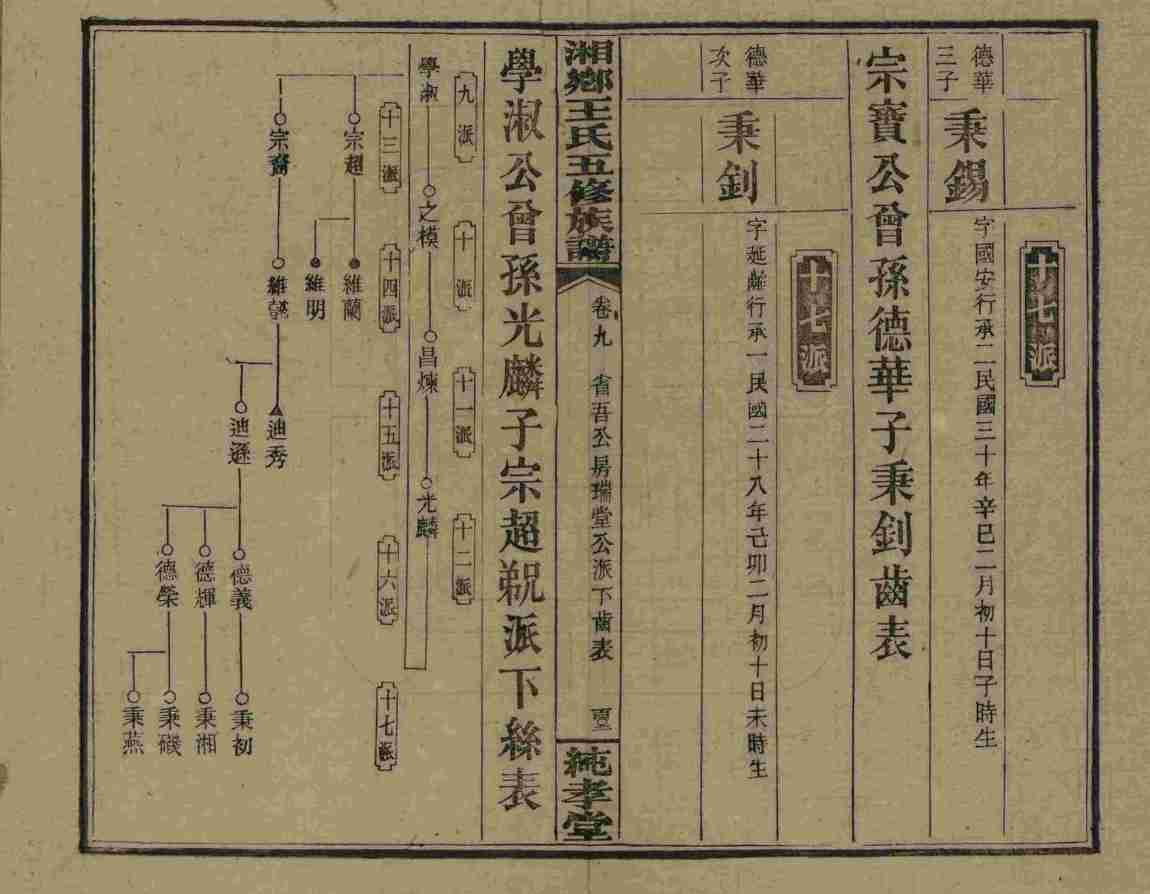 十七派
德華
三子
秉錫
字國安行承二民國三十年辛巳二月初十日子時生
宗寶公曾孫德華子秉釗齒表
十七派
德華
次子
秉釗
字延齡行承一民國二十八年己卯二月初十日未時生
湘鄉王氏五修族譜
卷九 省吾公房瑞堂公派下齒表
純孝堂
學淑公曾孫光麟子宗超派下絲表
九派
十派
十一派
十二派
學淑
之模
昌煉
光麟
十三派
十四派
十五派
十六派
十七派
宗超
宗裔
維蘭
維明
維懿
迪秀
迪遜
德義
德輝
德榮
秉初
秉湘
秉磯
秉燕